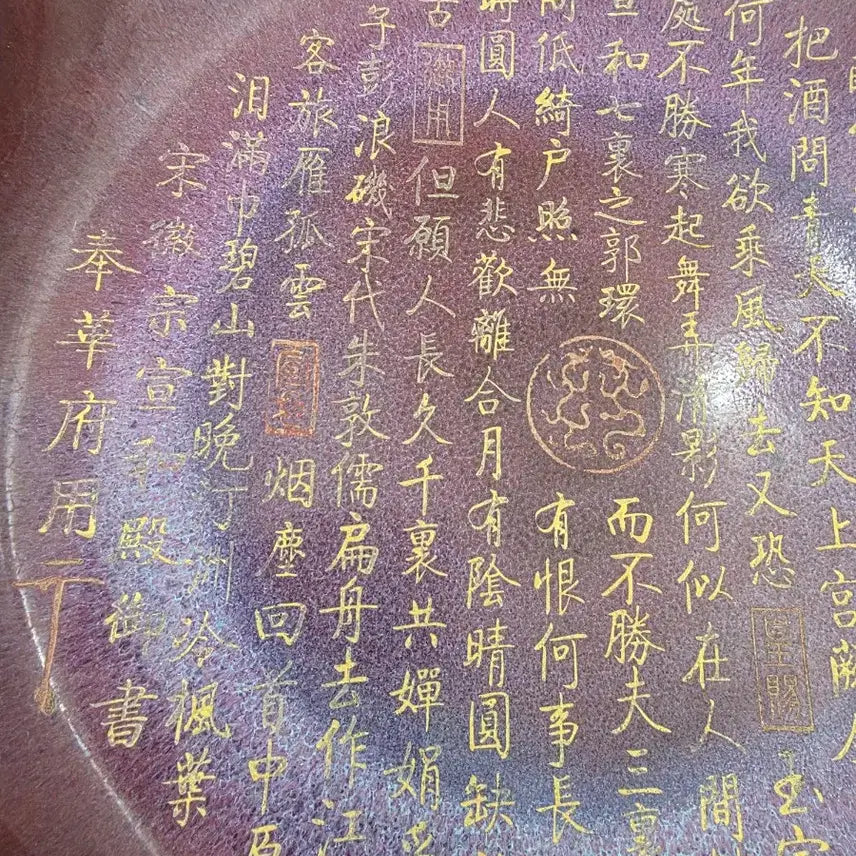 把酒問青天不知天上宫闕
何年我欲乘風歸去又恐皇賜玉宇
處不勝寒起舞弄清影何似在人間
宣和七裏之郭環而不勝夫三裏
低綺户照無有恨何事長
時圓人有悲歡離合月有陰晴圓缺
古但願人長久千裏共嬋娟
子彭浪磯宋代朱敦儒扁舟去作江
客旅雁孤雲烟塵回首中原
泪滿巾碧山對晚汀洲冷楓葉
宋徽宗宣和殿御書
奉華府用